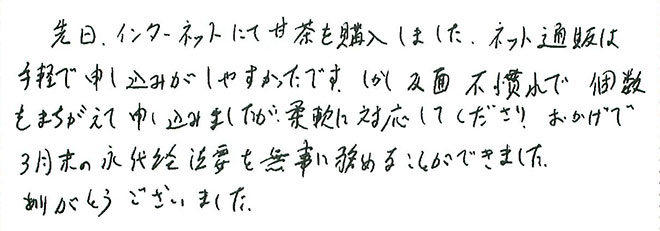 先日、インターネットにて甘茶を購入しました。ネット通販は
手軽で申し込みがしやすかったです。しかし反面 不慣れで 個数
をまちがえて申し込みましたが、柔軟に対応してくださり、おかげで
3月末の永代経法要を無事に務めることができました。
ありがとうございました。